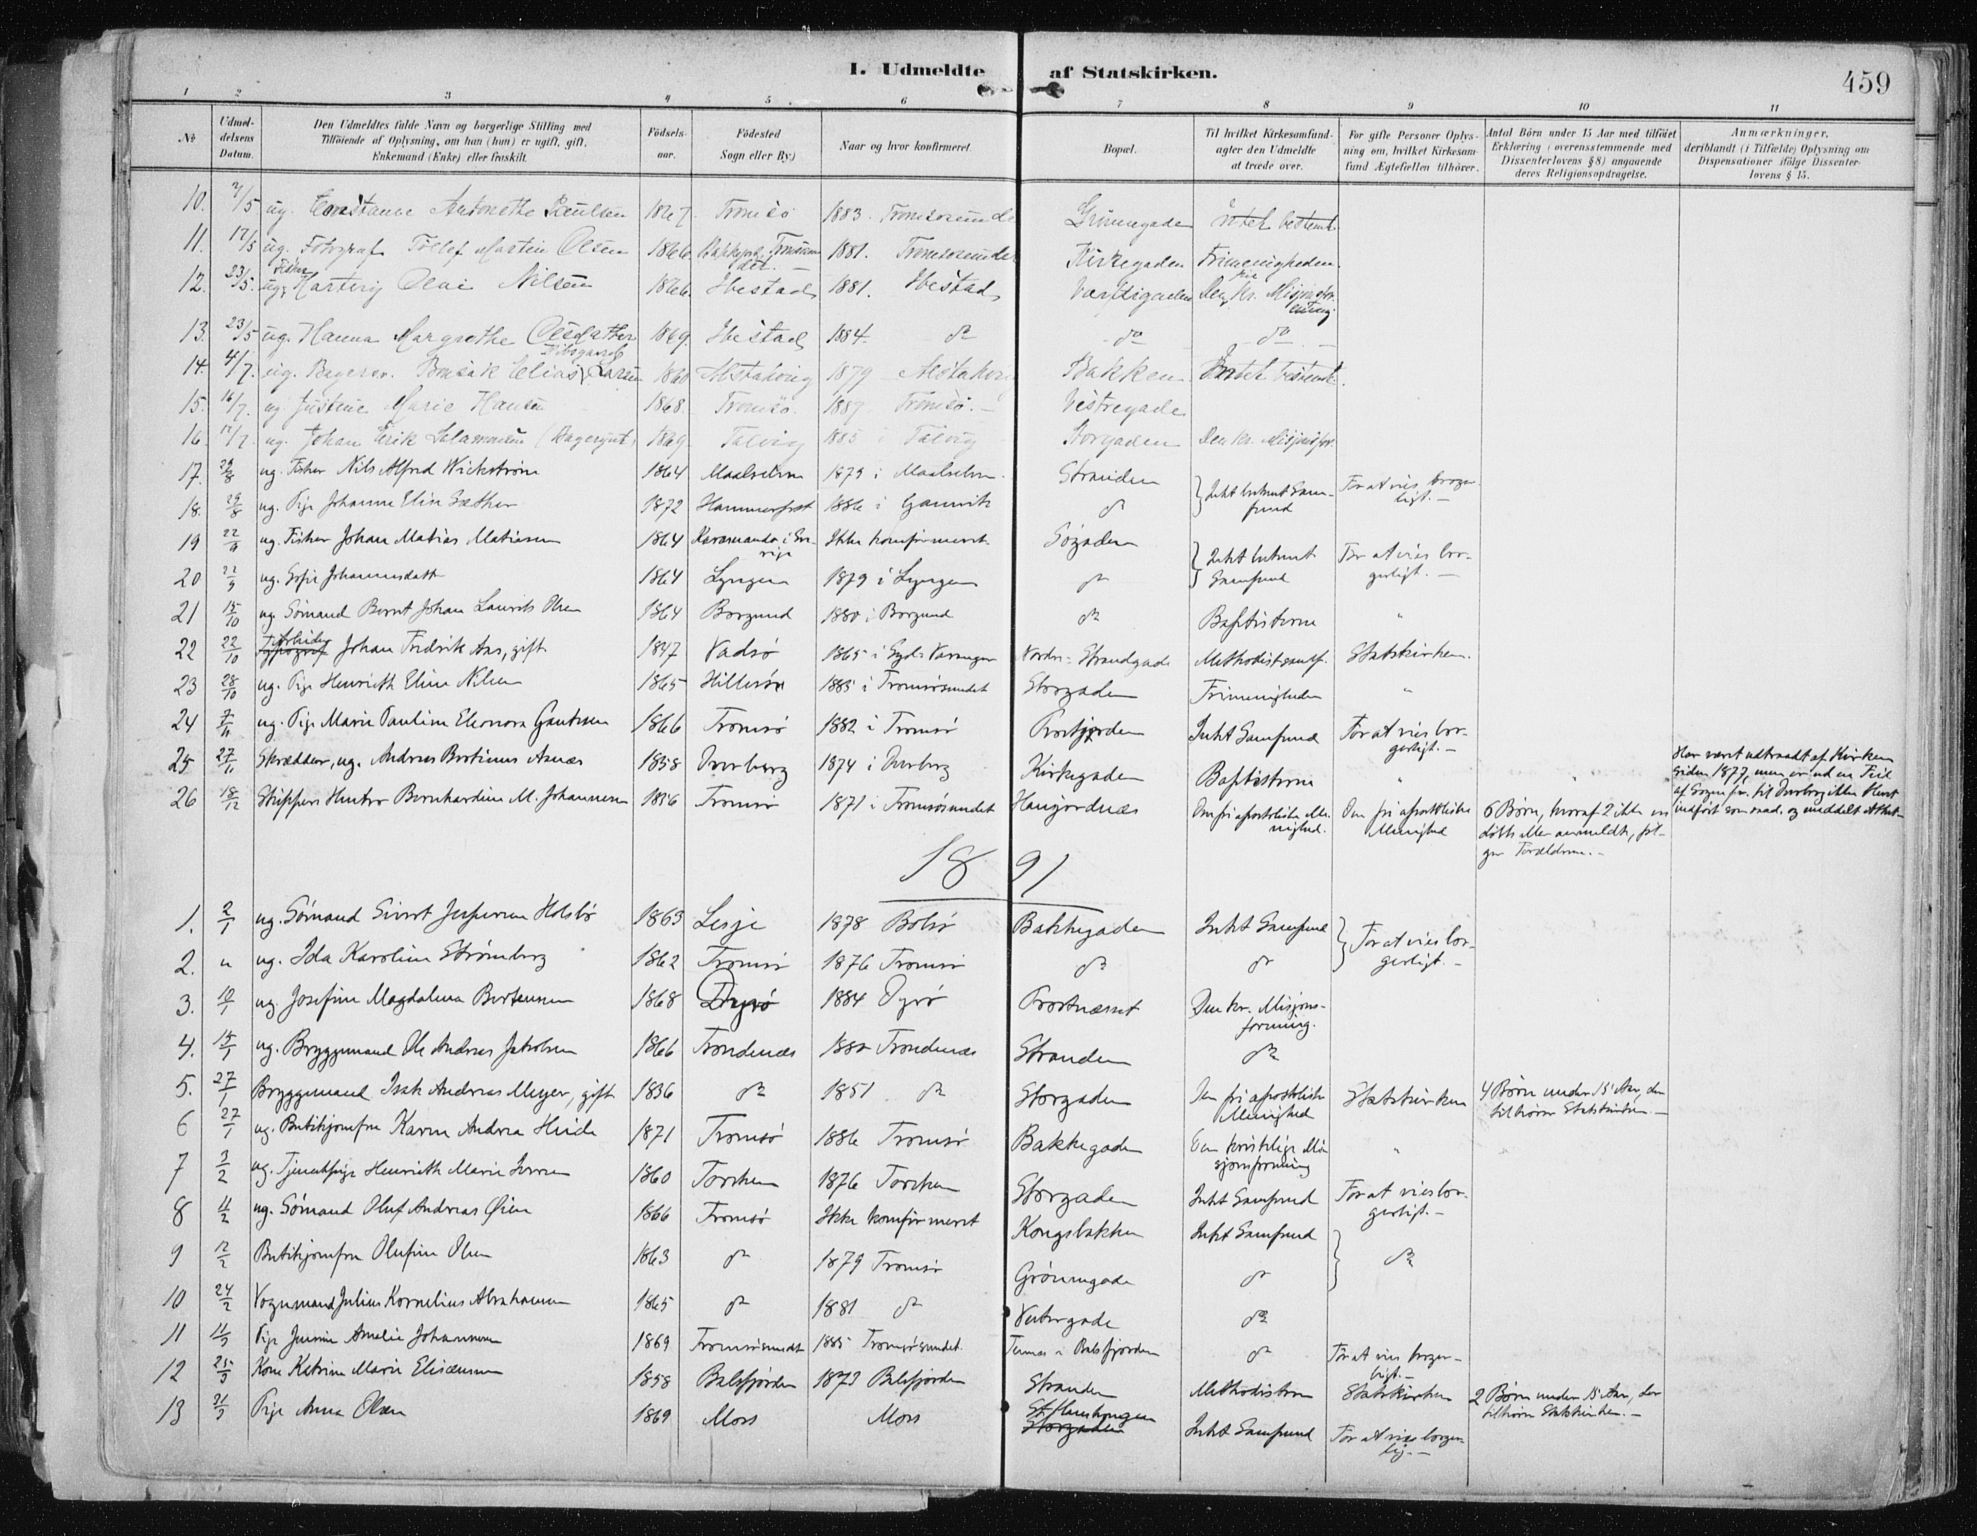 I. Udmeldte af Statskirken.
459
1 2 3 4 5 6 7 8 9 10 11
No
Udmel-
delsens
Datum.
Den Udmeldtes fulde Navn og borgerlige Stilling med
Tilföiende af Oplysning, om han (hun) er ugift, gift,
Enkemand (Enke) eller fraskilt.
Födsels-
aar.
Födested
Sogn eller By.)
Naar og hvor konfirmeret.
Bopæl.
Til hvilket Kirkesamfund
agter den Udmeldte
at træde over.
For gifte Personer Oplys-
ning om, hvilket Kirkesam-
fund Ægtefællen tilhörer.
Antal Börn under 15 Aar med tilföiet
Erklæring (overensstemmende med
Dissenterlovens § 8) angaaende
deres Religionsopdragelse.
Anmærkninger,
deriblandt (i Tilfælde) Oplysning om
Dispensationer ifölge Dissenter-
lovens § 15.
10. 7/5 ug. Constance Antonette Paulsen 1867. Tromsö 1883. Tromsösundet Grönnegaden Intet bestemt.
11. 17/5 ug. Fotograf Tollef Martin Olsen 1866. Tromsösundet 1881. Tromsösundet Kirkegaden Frimenigheden.
12. 23/5 ug. Fisker Olai Nilsen 1866. Ibestad 1881. Ibestad Den kr. Misjonsforening
13. 23/5 ug. Hanna Margrethe Olsdatter 1869. Ibestad 1884. do do do
14. 4/7. ug. Bagersv. Elias Larsen 1860 Alstahoug 1879 Alstahoug Bakken Intet bestemt.
15. 16/7. ug. Justine Marie Hansen 1868. Tromsö. 1887. Tromsö. Vestregade
16. 17/7. ug. Johan Erik Salamonsen (Bagersvend) 1869. Talvig 1885 i Talvig Storgaden Den kr. Misjonsfor.
17. 29/8 ug. Fisker Nils Alfred Wickstrøm 1864 Maalselven 1879 i Maalselven. Stranden Intet bestemt Sam-
fund For at vies borger-
ligt.
18. 29/8 ug. Pige Johanne Elise Sæther 1872 Hammerfest 1886 i Gamvik do
19 22/9 ug. Fisker Johan Matias Matiasen 1864 Karesuando i Sve-
rige Ikke konfirmeret. Søgaden Intet bestemt
Samfund For at vies bor-
gerligt.
20 22/9 ug. Sofie Johannesdatt 1864 Lyngen 1879 i Lyngen do
21 15/10 ug. Sømand Bernt Johan Laurits Olsen 1864 Borgund 1880 i Borgund do Baptisterne "
22 22/10 Arbeider Johan Fredrik Aas, gift 1847 Vadsø 1865 i Syd-Varanger Nordre Strandgade Methodistsamf. Statskirken.
23 28/10 ug. Pige Henriette Eline Nilsen 1865 Hillesøen 1885 i Tromsøsundet Storgaden Frimenigheden "
24 7/11 ug. Pige Marie Pauline Eleonora Gautesen 1866 Tromsø 1882 i Tromsø Intet Samfund For at vies bor-
gerligt.
25 27/11 Skrædder, ug. Andreas Bertinus Aanæs 1858 Overberg 1874 i Overberg Kirkegaden Baptisterne " "
Har været udtraadt af Kirken
siden 1877, men
26 18/12 Skippers Hustru Bernhardine M. Johannesen 1856 Tromsø 1871 i Tromsøsundet Haugjordnæs Den fri apostoliske Me-
nighed. Den fri apostoliske
Menighed 6 Børn, hvoraf 2 ikke ere
døbte eller anmeldte, føl-
ger Forældrene.
1891
1. 2/1 ug. Sømand Sivert Jespersen Holsbø 1863 Lesje 1878 Bolsø Bakkegaden Intet Samfund For at vies bor-
gerligt.
2. " ug. Ida Karoline Strømberg 1862 Tromsø 1876 Tromsø do do
3. 10/1 ug. Josefine Magdalena Bertensen 1868 Dyrø 1884 Dyrø Prostnæsset Den kr. Misjons-
forening.
4. 15/1 ug. Bryggemand Ole Andreas Jakobsen 1866 Trondenæs 1882 Trondenæs Stranden do
5. 27/1 Bryggemand Isak Andreas Meyer, gift 1836 do 1851 do Storgaden Den fri apostoliske
Menighed Statskirken 4 Børn under 15 Aar, der
tilhører Statskirken.
6 27/1 ug. Butikjomfru Karen Andrea Heide 1871 Tromsø 1886 Tromsø Bakkegaden Den kristelige Mis-
sjonsforening "
7 3/2 ug. Tjenestpige Henriette Marie Iversen 1860 Torsken 1876 Torsken Storgaden Intet Samfund For at vies bor-
gerligt.
8 11/2 ug. Sømand Oluf Andreas Øien 1866 Tromsø Ikke konfirmeret Kongsbakken Intet Samfund do
9 12/2 Butikjomfru Olufine Olsen 1863 do 1879 Tromsø Grønnegade do
10 24/2 Vognmand Julius Kornelius Abrahamsen 1865 do 1881 do Vestregade do
11 11/3 Pige Jennie Amalie Johannesen 1869 Tromsøsundet 1885 Tromsøsundet. Tennes i Balsfjorden do For at vies borger-
ligt.
12 25/3 Kone Katrine Marie Elisæussen 1858 Balsfjorden 1873 Balsfjorden Stranden Methodisterne Statskirken 2 Børn under 15 Aar, der
tilhører Statskirken.
13 31/3 Pige Anna Olsen 1869 Mors Mors Storgaden Intet Samfund For at vies borger-
lig.